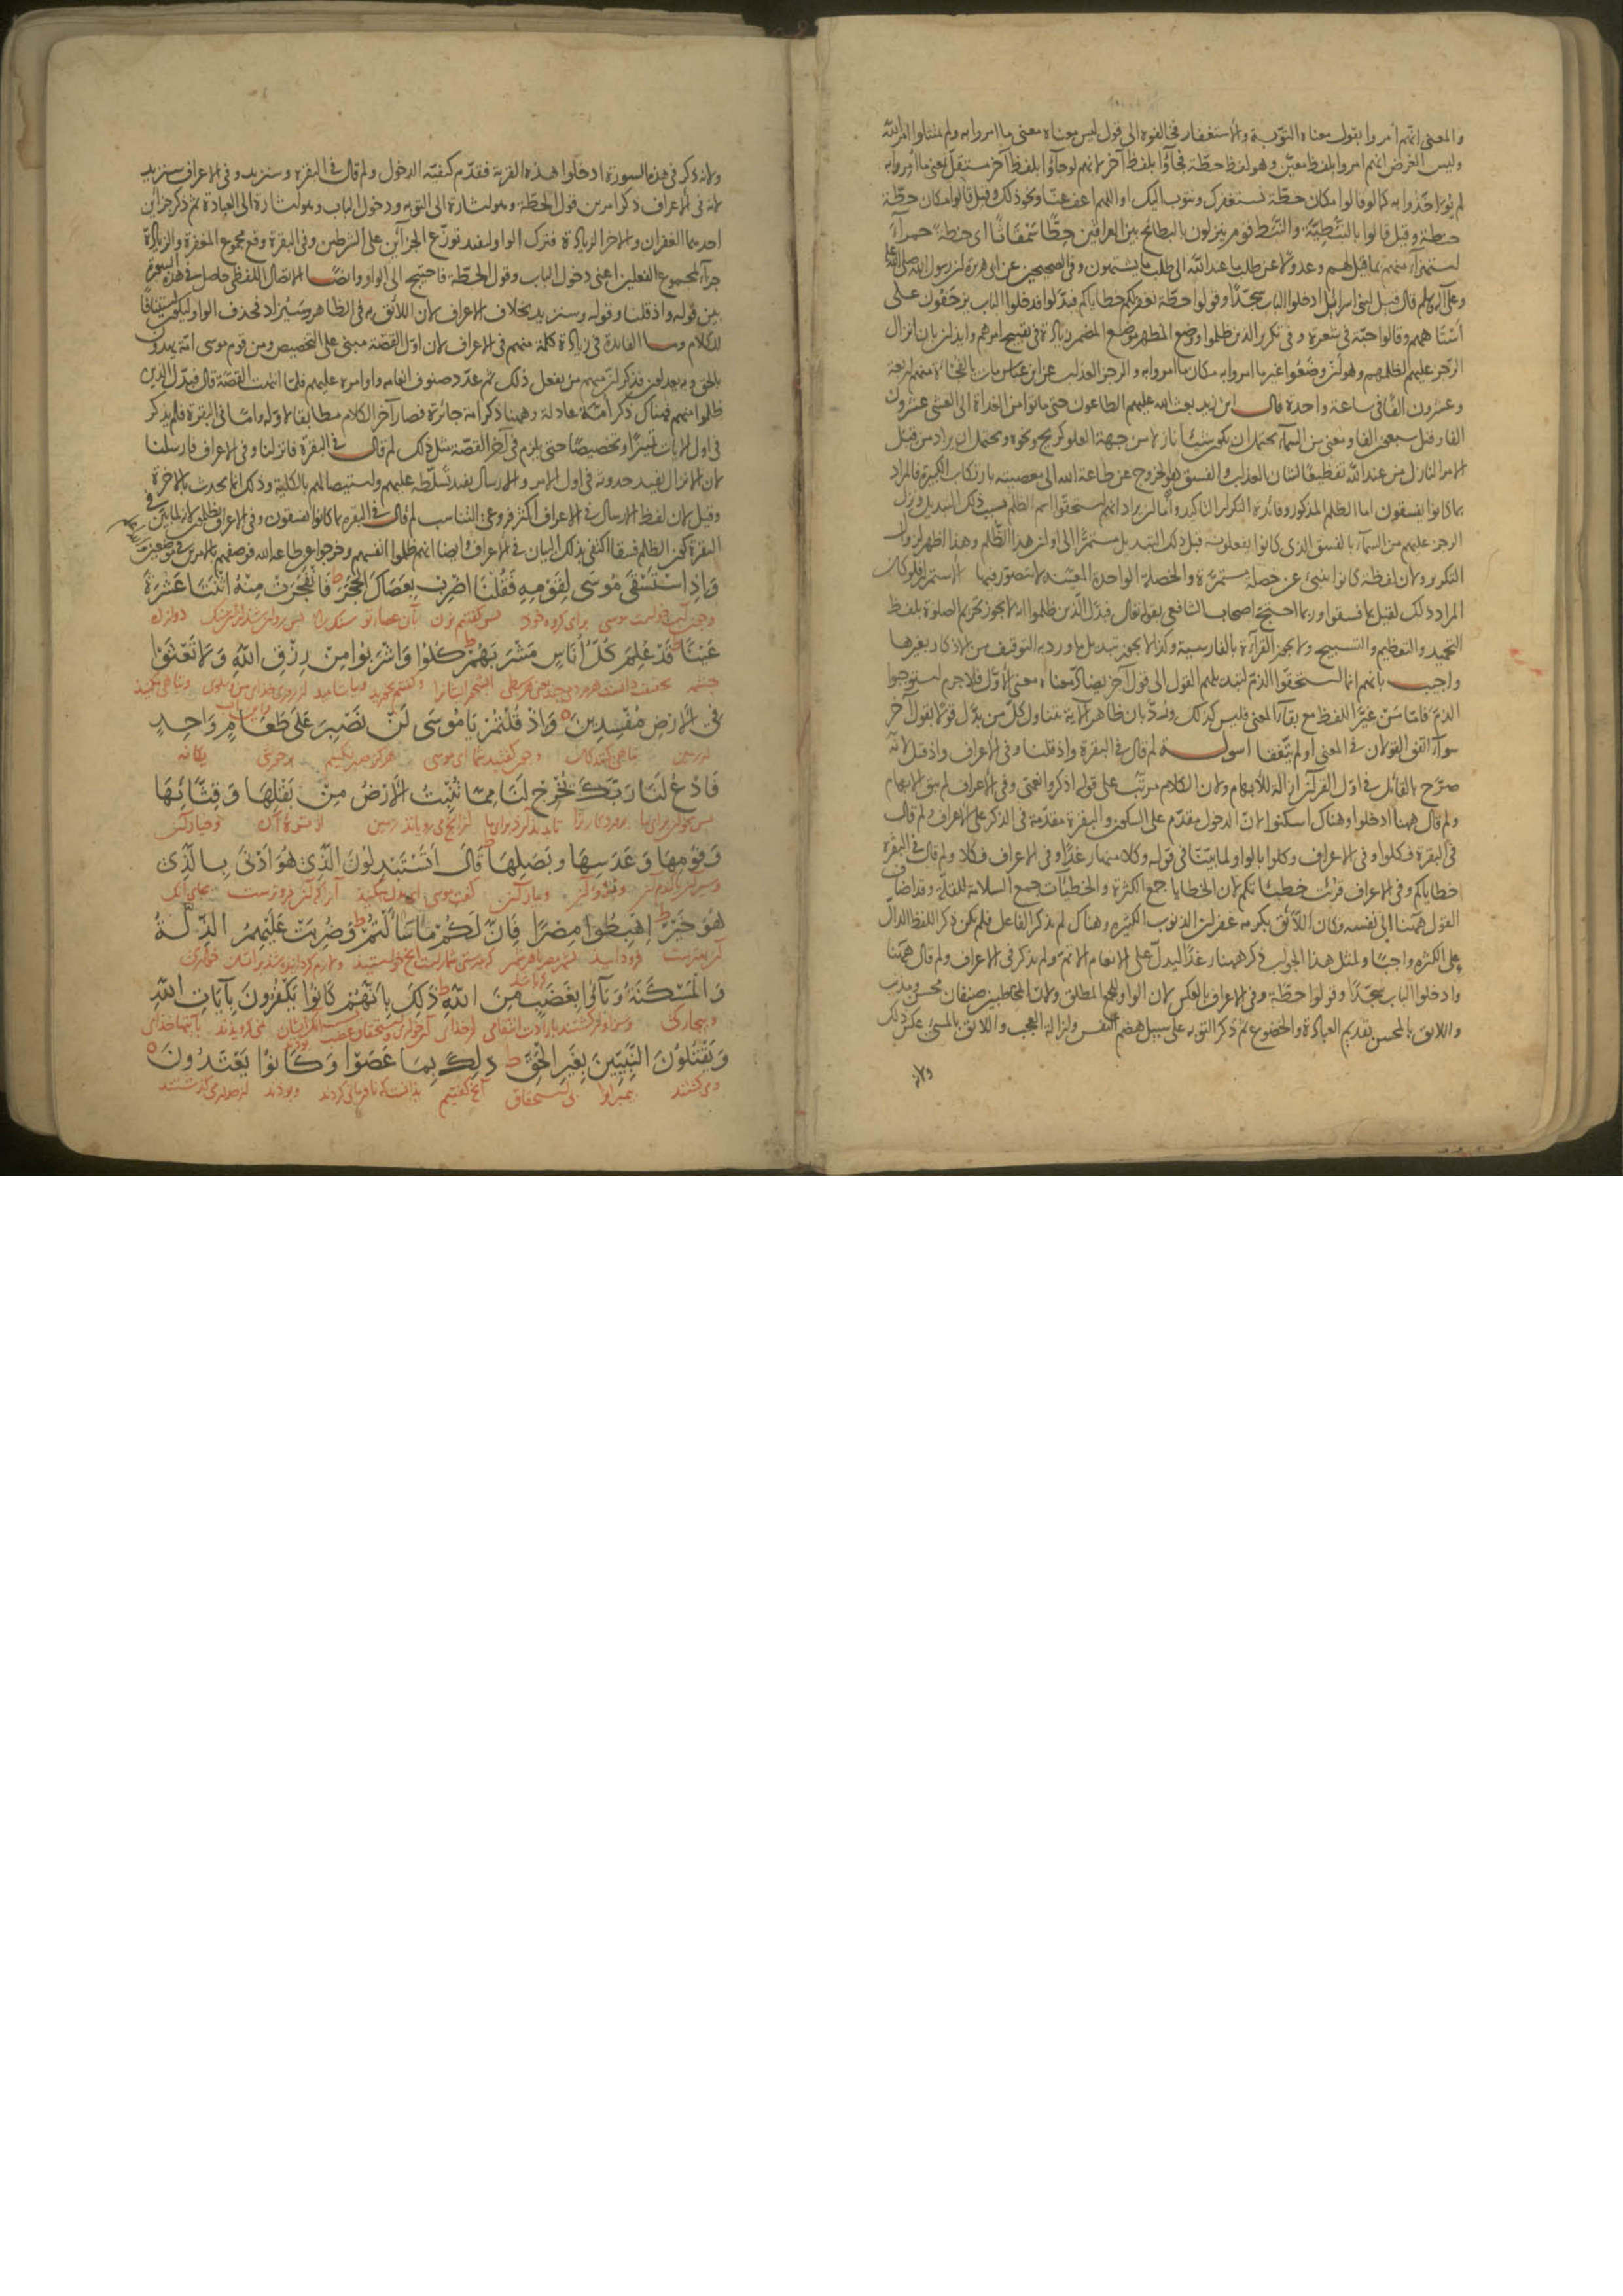 والمعنى انهم امروا بقول معناه التوبة والاستغفار فخالفوه الى قول ليس معناه معنى ما امروا به ولم يمتثلوا امر الله
وليس الغرض انهم امروا بلفظ معين وهو لفظ حطة فجاؤا بلفظ آخر لانهم لو جاؤا بلفظ آخر مستقل بمعنى ما امروا به
لم يؤاخذوا به كما لو قالوا مكان حطة نستغفرك ونتوب اليك او اللهم اعف عنا ونحو ذلك وقيل قالوا مكان حطة
حنطة وقيل قالوا بالنبطية والنبط قوم ينزلون بالبطائح بين العراقين حطا سمقاثا اى حنطة حمراء
استهزاء منهم بما قيل لهم وعدولا عن طلب ما عند الله الى طلب ما يشتهون وفى الصحيحين عن ابى هريرة ان رسول الله صلى الله عليه
وعلى آله وسلم قال قيل لبنى اسرائيل ادخلوا الباب سجدا وقولوا حطة نغفر لكم خطاياكم فبدلوا فدخلوا الباب يزحفون على
استاههم وقالوا حبة فى شعرة وفى تكرير الذين ظلموا ووضع المظهر موضع المضمر زيادة فى تقبيح امرهم وايذان بان انزال
الرجز عليهم لظلمهم وهو ان وضعوا غير ما امروا به مكان ما امروا به والرجز العذاب عن ابن عباس مات بالفجاءة منهم اربعة
وعشرون الفا فى ساعة واحدة قال ابن زيد بعث الله عليهم الطاعون حتى ماتوا من الغداة الى العشى عشرون
الفا وقيل سبعون الفا ومعنى من السماء يحتمل ان يكون شيئا نازلا من جهة العلو كريح ونحوه ويحتمل ان يراد من قبل
الامر النازل من عند الله تفظيعا لشان العذاب والفسق هو الخروج عن طاعة الله الى معصيته بارتكاب الكبيرة فالمراد
بما كانوا يفسقون اما الظلم المذكور وفائدة التكرار التاكيد واما ان يراد انهم استحقوا اسم الظلم بسبب ذلك التبديل ونزل
الرجز عليهم من السماء بالفسق الذى كانوا يفعلونه قبل ذلك التبديل مستمرا الى اوان هذا الظلم وهذا اظهر لزوال
التكرير ولان لفظة كانوا تنبئ عن خصلة مستمرة والخصلة الواحدة المعينة لا يتصور فيها الاستمرار فلو كان
المراد ذلك لقيل بما فسقوا وربما احتج اصحاب الشافعى بقوله تعالى فبدل الذين ظلموا انه لا يجوز تحريم الصلوة بلفظ
التحميد والتعظيم والتسبيح ولا تجوز القراءة بالفارسية وكذا لا يجوز تبديل ما ورد به التوقيف من الاذكار بغيرها
واجيب بانهم انما استحقوا الذم لتبديلهم القول الى قول آخر يضاد معناه معنى الاول فلا جرم استوجبوا
الذم فاما من غير اللفظ مع بقاء المعنى فليس كذلك ورد بان ظاهر الآية يتناول كل من بدل قولا بقول آخر
سواء اتفق القولان فى المعنى او لم يتفقا اسولة لم قال فى البقرة واذ قلنا وفى الاعراف واذ قيل لانه
صرح بالقائل فى اول القرآن ازالة للابهام ولان الكلام مرتب على قوله اذكروا نعمتى وفى الاعراف لم يبق الابهام
ولم قال ههنا ادخلوا وهناك اسكنوا لان الدخول مقدم على السكون والبقرة مقدمة فى الذكر على الاعراف ولم قال
فى البقرة فكلوا وفى الاعراف وكلوا بالواو لما بينا فى قوله وكلا منها رغدا وفى الاعراف فكلا ولم قال فى البقرة
خطاياكم وفى الاعراف قرئت خطيئاتكم لان الخطايا جمع الكثرة والخطيئات جمع السلامة للقلة وقد اضاف
القول ههنا الى نفسه وكان اللائق بكرمه غفران الذنوب الكثيرة وهناك لم يذكر الفاعل فلم يكن ذكر اللفظ الدال
على الكثرة واجبا ولمثل هذا الجواب ذكر ههنا رغدا ليدل على الانعام الاتم ولم يذكر فى الاعراف ولم قال ههنا
وادخلوا الباب سجدا وقولوا حطة وفى الاعراف بالعكس لان الواو للجمع المطلق ولان المخاطبين صنفان محسن ومذنب
واللائق بالمحسن تقديم العبادة والخضوع ثم ذكر التوبة على سبيل هضم النفس وازالة العجب واللائق بالمسئ عكس ذلك
ولانه
ولانه ذكر فى هذه السورة ادخلوا هذه القرية فقدم كيفية الدخول ولم قال فى البقرة وسنزيد وفى الاعراف سنزيد
لانه فى الاعراف ذكر امرين قول الحطة وهو اشارة الى التوبة ودخول الباب وهو اشارة الى العبادة ثم ذكر جزاين
احدهما الغفران والآخر الزيادة فترك الواو ليفيد توزع الجزاين على الشرطين وفى البقرة وقع مجموع المغفرة والزيادة
جزاء لمجموع الفعلين اعنى دخول الباب وقول الحطة فاحتيج الى الواو وايضا الاتصال اللفظى حاصل فى هذه السورة
بين قوله واذ قلنا وقوله وسنزيد بخلاف الاعراف لان اللائق به فى الظاهر وسيزاد فحذف الواو ليكون استينافا
للكلام وما الفائدة فى زيادة كلمة منهم فى الاعراف لان اول القصة مبنى على التخصيص ومن قوم موسى امة يهدون
بالحق وبه يعدلون فذكر ان منهم من يفعل ذلك ثم عدد صنوف انعامه واوامره عليهم فلما انتهت القصة قال فبدل الذين
ظلموا منهم فهناك ذكر امة عادلة وههنا ذكر امة جائرة فصار آخر الكلام مطابقا لاوله واما فى البقرة فلم يذكر
فى اول الآيات تمييزا وتخصيصا حتى يلزم فى آخر القصة مثل ذلك لم قال فى البقرة فانزلنا وفى الاعراف فارسلنا
لان الانزال يفيد حدوثه فى اول الامر والارسال يفيد تسلطه عليهم واستيصالهم بالكلية وذلك انما يحدث بالآخرة
وقيل لان لفظ الارسال فى الاعراف اكثر فروعى التناسب لم قال فى البقرة بما كانوا يفسقون وفى الاعراف يظلمون لانه لما بين فى
البقرة كون الظلم فسقا اكتفى بذلك البيان فى الاعراف وايضا انهم ظلموا انفسهم وخرجوا عن طاعة الله فوصفهم بالامرين فى موضعين
وَاِذِ اسْتَسْقَى مُوسَى لِقَوْمِهِ فَقُلْنَا اضْرِبْ بِعَصَاكَ الْحَجَرَ ط فَانْفَجَرَتْ مِنْهُ اثْنَتَا عَشْرَةَ
عَيْنًا ط قَدْ عَلِمَ كُلُّ اُنَاسٍ مَشْرَبَهُمْ ط كُلُوا وَاشْرَبُوا مِنْ رِزْقِ اللهِ وَلَا تَعْثَوْا
فِى الْاَرْضِ مُفْسِدِينَ وَاِذْ قُلْتُمْ يَا مُوسَى لَنْ نَصْبِرَ عَلَى طَعَامٍ وَاحِدٍ
فَادْعُ لَنَا رَبَّكَ يُخْرِجْ لَنَا مِمَّا تُنْبِتُ الْاَرْضُ مِنْ بَقْلِهَا وَقِثَّائِهَا
وَفُومِهَا وَعَدَسِهَا وَبَصَلِهَا ط قَالَ اَتَسْتَبْدِلُونَ الَّذِى هُوَ اَدْنَى بِالَّذِى
هُوَ خَيْرٌ ط اِهْبِطُوا مِصْرًا فَاِنَّ لَكُمْ مَا سَاَلْتُمْ ط وَضُرِبَتْ عَلَيْهِمُ الذِّلَّةُ
وَالْمَسْكَنَةُ وَبَآؤُا بِغَضَبٍ مِنَ اللهِ ط ذَلِكَ بِاَنَّهُمْ كَانُوا يَكْفُرُونَ بِآيَاتِ اللهِ
وَيَقْتُلُونَ النَّبِيِّينَ بِغَيْرِ الْحَقِّ ط ذَلِكَ بِمَا عَصَوْا وَكَانُوا يَعْتَدُونَ